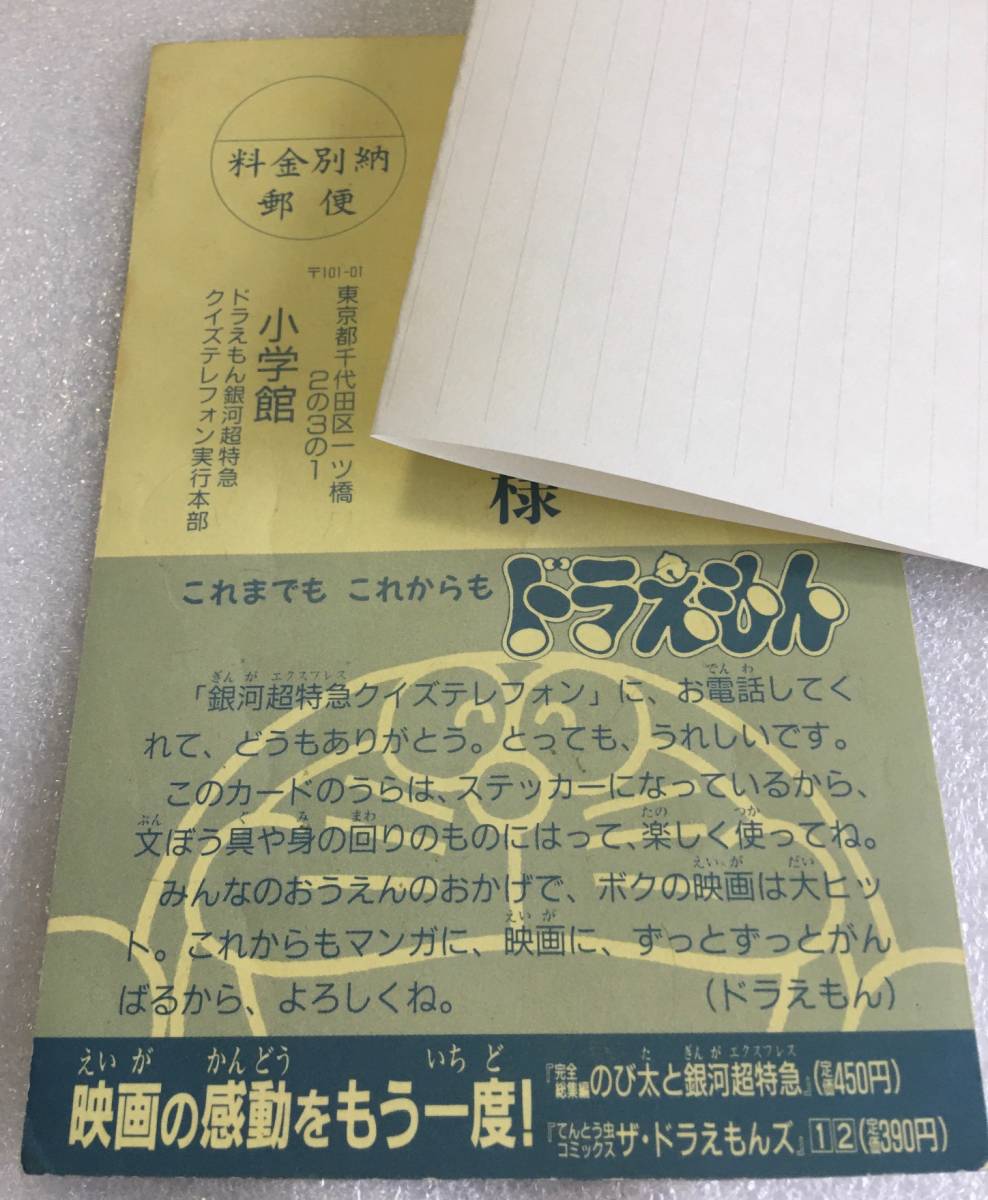 料金別納
郵便
〒101-01
東京都千代田区一ツ橋
2の3の1
小学館
ドラえもん銀河超特急
クイズテレフォン実行本部
様
これまでも これからも ドラえもん
ぎんが エクスプレス でんわ
「銀河超特急クイズテレフォン」に、お電話してく
れて、どうもありがとう。とっても、うれしいです。
このカードのうらは、ステッカーになっているから、
ぶん ぐ み まわ たの つか
文ぼう具や身の回りのものにはって、楽しく使ってね。
えいが だい
みんなのおうえんのおかげで、ボクの映画は大ヒッ
えいが
ト。これからもマンガに、映画に、ずっとずっとがん
ばるから、よろしくね。 (ドラえもん)
えいが かんどう いちど
映画の感動をもう一度!
た ぎんがエクスプレス
『完全総集編のび太と銀河超特急』(定価450円)
『てんとう虫コミックスザ・ドラえもんズ』12(定価390円)